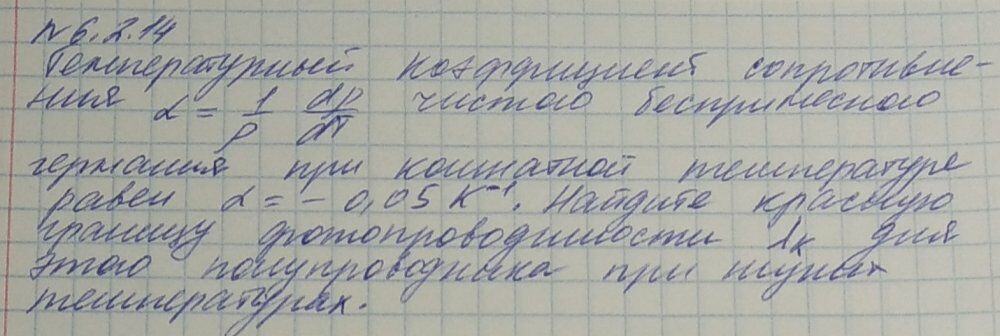 №6.2.14
Температурный коэффициент сопротивле-
ния α = 1/ρ dρ/dT чистого беспримесного
германия при комнатной температуре
равен α = - 0,05 K⁻¹. Найдите красную
границу фотопроводимости λк для
этого полупроводника при низких
температурах.